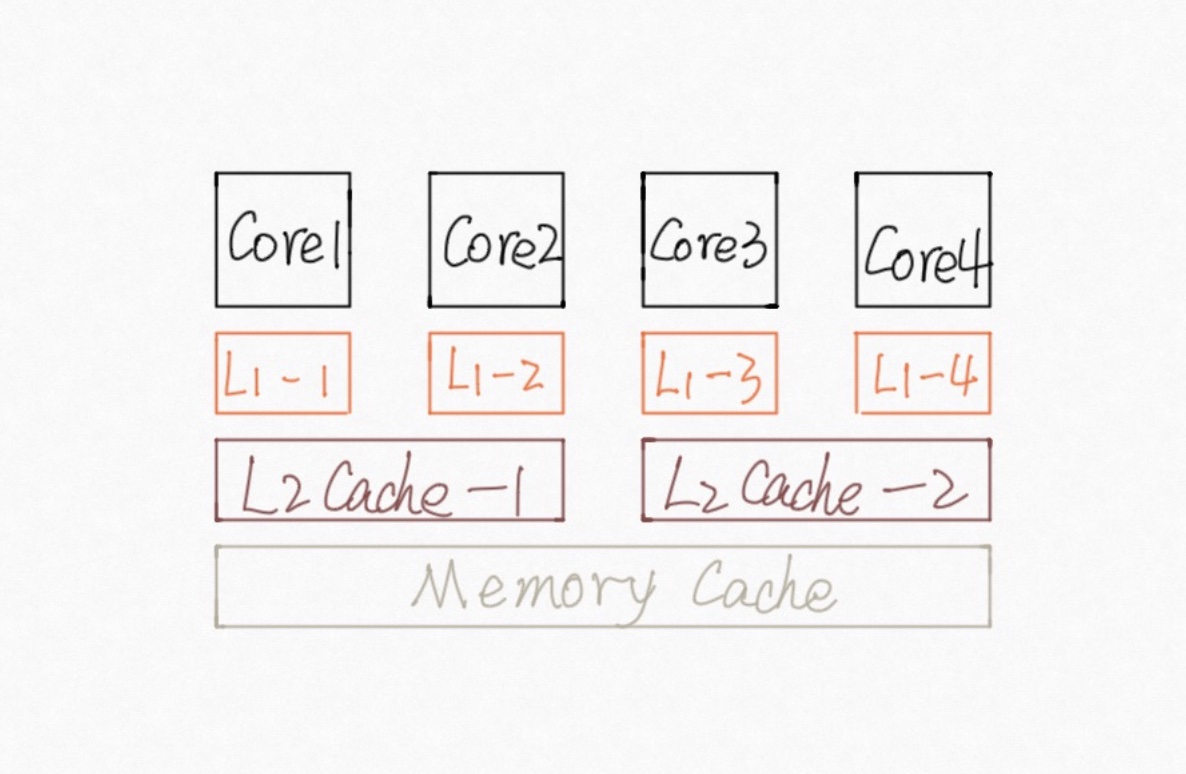 Core1 Core2 Core3 Core4
L1-1 L1-2 L1-3 L1-4
L2 Cache-1 L2 Cache-2
Memory Cache